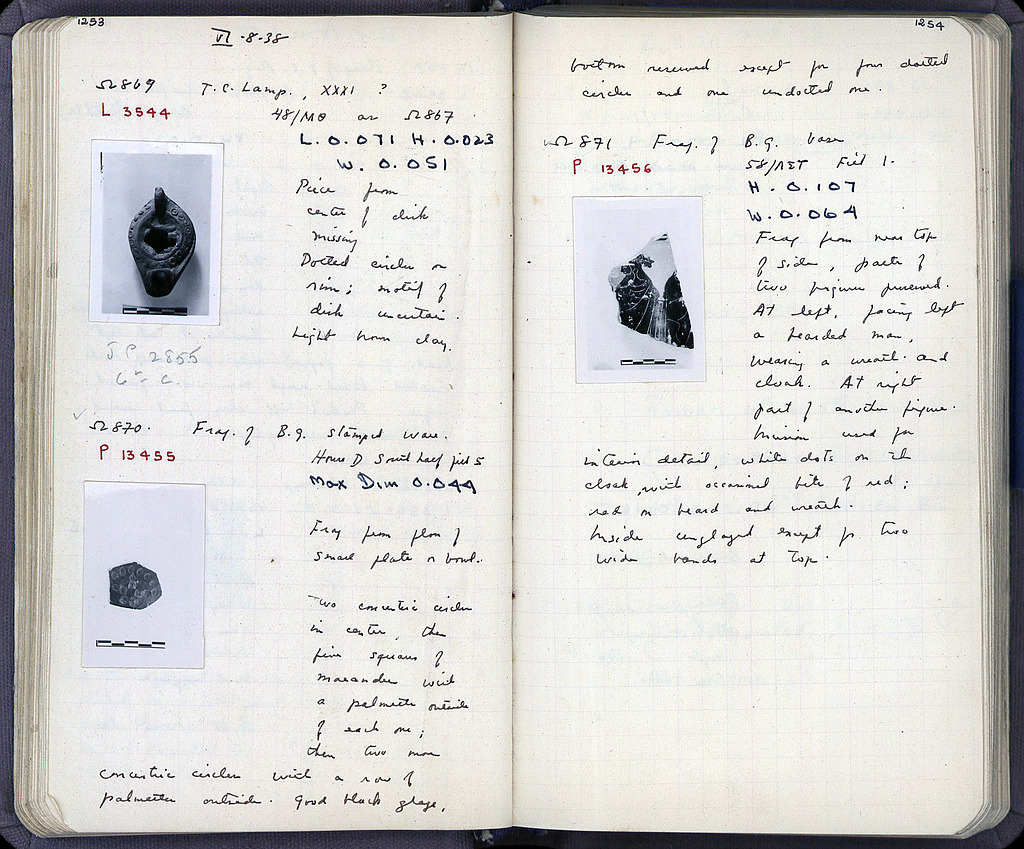 1253
VI -8-38
Ω869 T.C. Lamp., XXXI ?
L 3544 48/ΜΘ as Ω867.
L. 0.071 H. 0.023
W. 0.051
Piece from
center of disk
missing
Dotted circles on
rim; motif of
disk uncertain.
Light brown clay.
J.P. 2855
6th C.
Ω870. Frag. of B.g. stamped ware.
P 13455 House D South half fill 5
Max Dim 0.044
Frag from floor of
small plate or bowl.
Two concentric circles
in center, then
five squares of
maeander with
a palmette outside
of each one;
then two more
concentric circles with a row of
palmettes outside. Good black glaze,
1254
bottom reserved except for four dotted
circles and one undotted one.
Ω871 Frag. of B.g. vase
P 13456 58/ΛΣΤ Fill 1.
H. 0.107
W. 0.064
Frag from near top
of side, parts of
two figures preserved.
At left, facing left
a bearded man,
wearing a wreath and
cloak. At right
part of another figure.
Incision used for
interior detail, white dots on the
cloak, with occasional bits of red;
red on beard and wreath.
Inside unglazed except for two
wide bands at top.